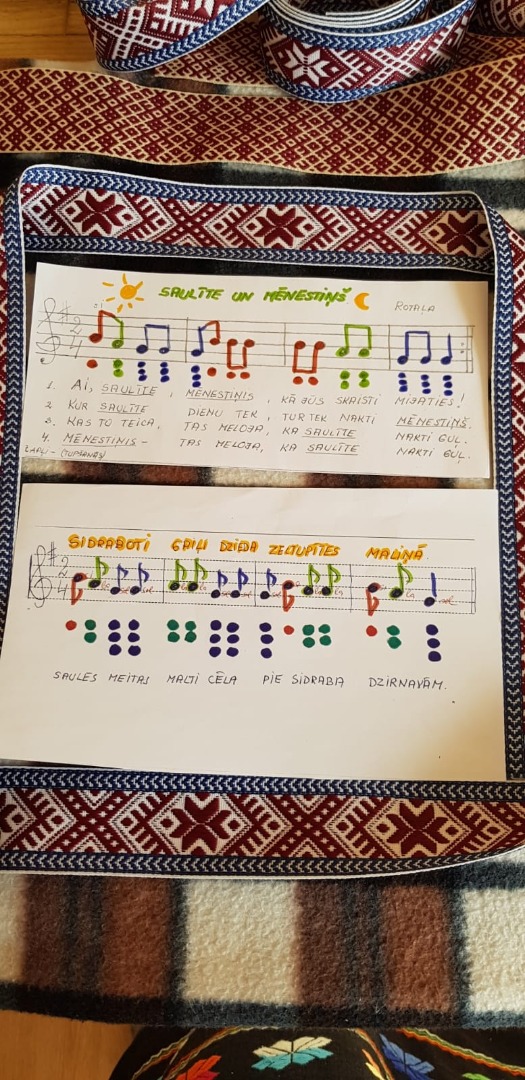 SAULĪTE UN MĒNESTIŅŠ
ROTAĻA
2
4
1. AI, SAULĪTE, MĒNESTIŅIS, KĀ JŪS SKAISTI MIJATIES!
2. KUR SAULĪTE DIENU TEK, TUR TEK NAKTI MĒNESTIŅŠ.
3. KAS TO TEICA, TAS MELOJA, KA SAULĪTE NAKTI GUĻ.
4. MĒNESTIŅIS – TAS MELOJA, KA SAULĪTE NAKTI GUĻ.
SIDRABOTI GAIĻI DZIED ZELTUPĪTES MALIŅĀ
2
4
SAULES MEITAS MALTI CĒLA PIE SIDRABA DZIRNAVĀM.